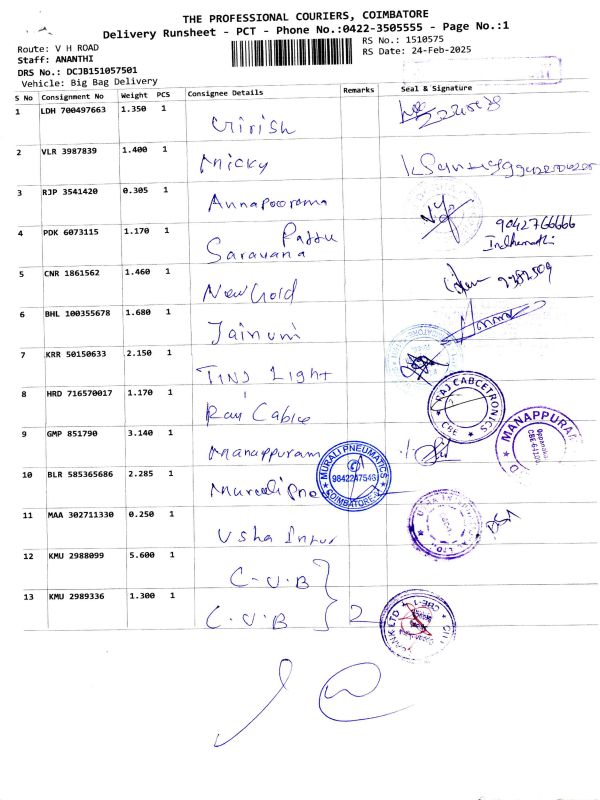 THE PROFESSIONAL COURIERS, COIMBATORE
Delivery Runsheet - PCT - Phone No.:0422-3505555 - Page No.:1
Route: V H ROAD
RS No.: 1510575
Staff: ANANTHI
RS Date: 24-Feb-2025
DRS No.: DCJB151057501
Vehicle: Big Bag Delivery
S No Consignment No Weight PCS Consignee Details Remarks Seal & Signature
1 LDH 700497663 1.350 1 Girish
2 VLR 3987839 1.400 1 Micky
3 RJP 3541420 0.305 1 Annapoorama
4 PDK 6073115 1.170 1 Saravana Pattu 9042766666
Indhumathi
5 CNR 1861562 1.460 1 New Gold
6 BHL 100355678 1.680 1 Jainum
7 KRR 50150633 2.150 1 Tiny Light
8 HRD 716570017 1.170 1 Raj Cabce
RAJ CABCETRONICS
CBE
9 GMP 851790 3.140 1 Manappuram
MANAPPURAM
10 BLR 585365686 2.285 1 Murali Pne
MURALI PNEUMATICS
9842247546
COIMBATORE
11 MAA 302711330 0.250 1 Usha Inter
12 KMU 2988099 5.600 1 C.U.B
13 KMU 2989336 1.300 1 C.U.B 2
CITY
BANK LTD
CBE-1